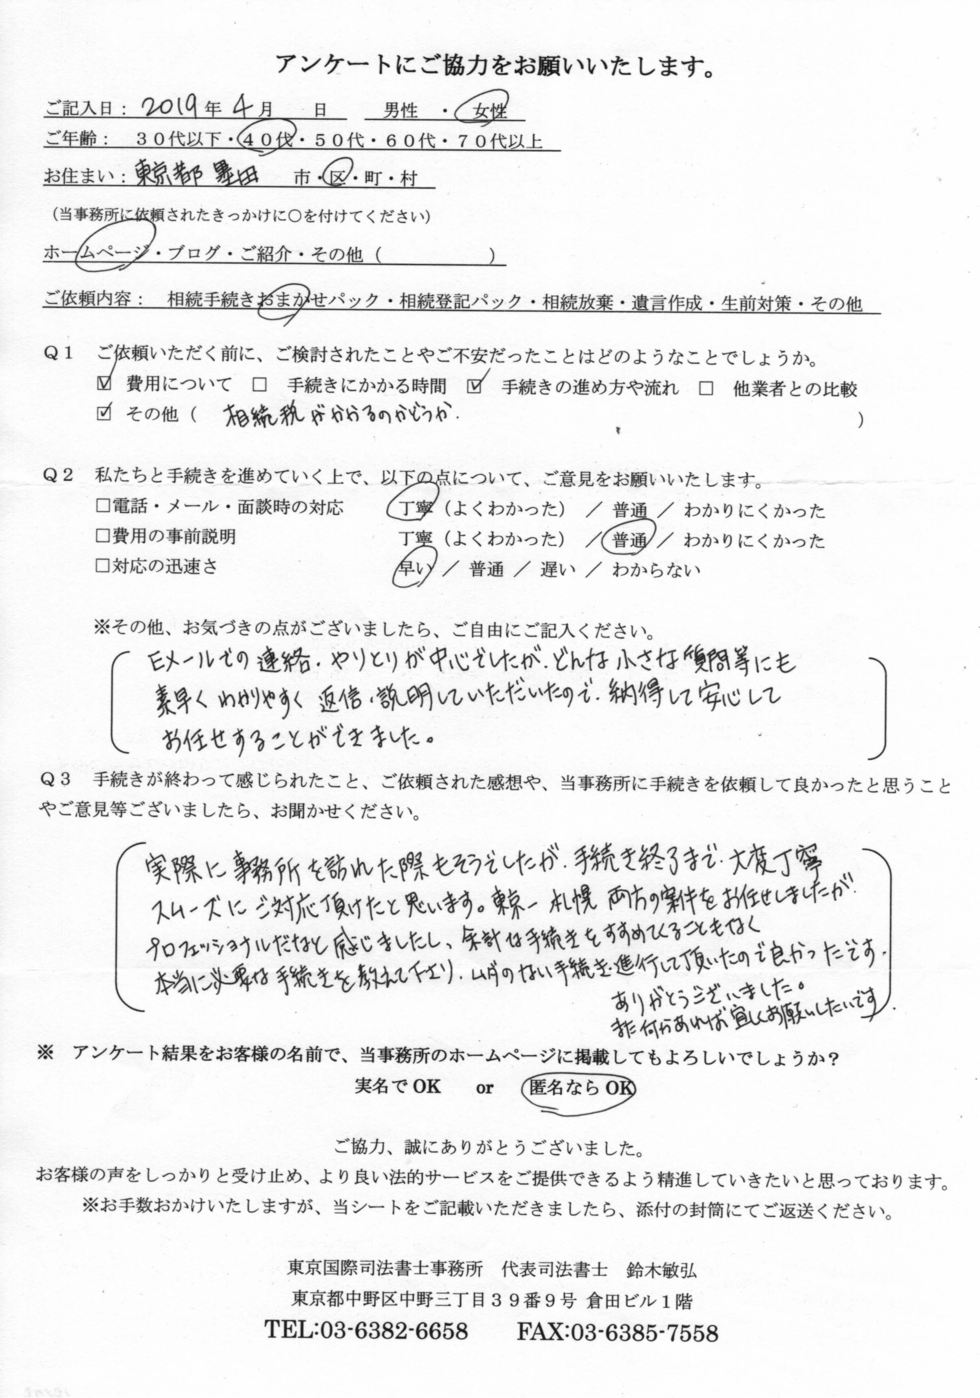 アンケートにご協力をお願いいたします。
ご記入日：2019年4月　　日　　男性　・　女性
ご年齢：　３０代以下・４０代・５０代・６０代・７０代以上
お住まい：東京都 墨田　　市・区・町・村
（当事務所に依頼されたきっかけに○を付けてください）
ホームページ・ブログ・ご紹介・その他（　　　　　　）
ご依頼内容：　相続手続きおまかせパック・相続登記パック・相続放棄・遺言作成・生前対策・その他
Ｑ１　ご依頼いただく前に、ご検討されたことやご不安だったことはどのようなことでしょうか。
☑ 費用について　□ 手続きにかかる時間　☑ 手続きの進め方や流れ　□ 他業者との比較
☑ その他（　相続税がかかるのかどうか.　）
Ｑ２　私たちと手続きを進めていく上で、以下の点について、ご意見をお願いいたします。
□電話・メール・面談時の対応　　丁寧（よくわかった）　／　普通　／　わかりにくかった
□費用の事前説明　　丁寧（よくわかった）　／　普通　／　わかりにくかった
□対応の迅速さ　　早い　／　普通　／　遅い　／　わからない
※その他、お気づきの点がございましたら、ご自由にご記入ください。
Eメールでの連絡・やりとりが中心でしたが、どんな小さな質問等にも
素早くわかりやすく返信・説明していただいたので、納得して安心して
お任せすることができました。
Ｑ３　手続きが終わって感じられたこと、ご依頼された感想や、当事務所に手続きを依頼して良かったと思うこと
やご意見等ございましたら、お聞かせください。
実際に事務所を訪れた際もそうでしたが、手続き終了まで、大変丁寧
スムーズにご対応頂けたと思います。東京ー札幌 両方の案件をお任せしましたが
プロフェッショナルだなと感じましたし、余計な手続きをすすめてくることもなく
本当に必要な手続きを教えて下さり、ムダのない手続きを進行して頂いたので良かったです.
ありがとうございました。
また何かあれば宜しくお願いしたいです.
※　アンケート結果をお客様の名前で、当事務所のホームページに掲載してもよろしいでしょうか？
実名でOK　　or　　匿名ならOK
ご協力、誠にありがとうございました。
お客様の声をしっかりと受け止め、より良い法的サービスをご提供できるよう精進していきたいと思っております。
※お手数おかけいたしますが、当シートをご記載いただきましたら、添付の封筒にてご返送ください。
東京国際司法書士事務所　代表司法書士　鈴木敏弘
東京都中野区中野三丁目３９番９号 倉田ビル１階
TEL:03-6382-6658　　FAX:03-6385-7558